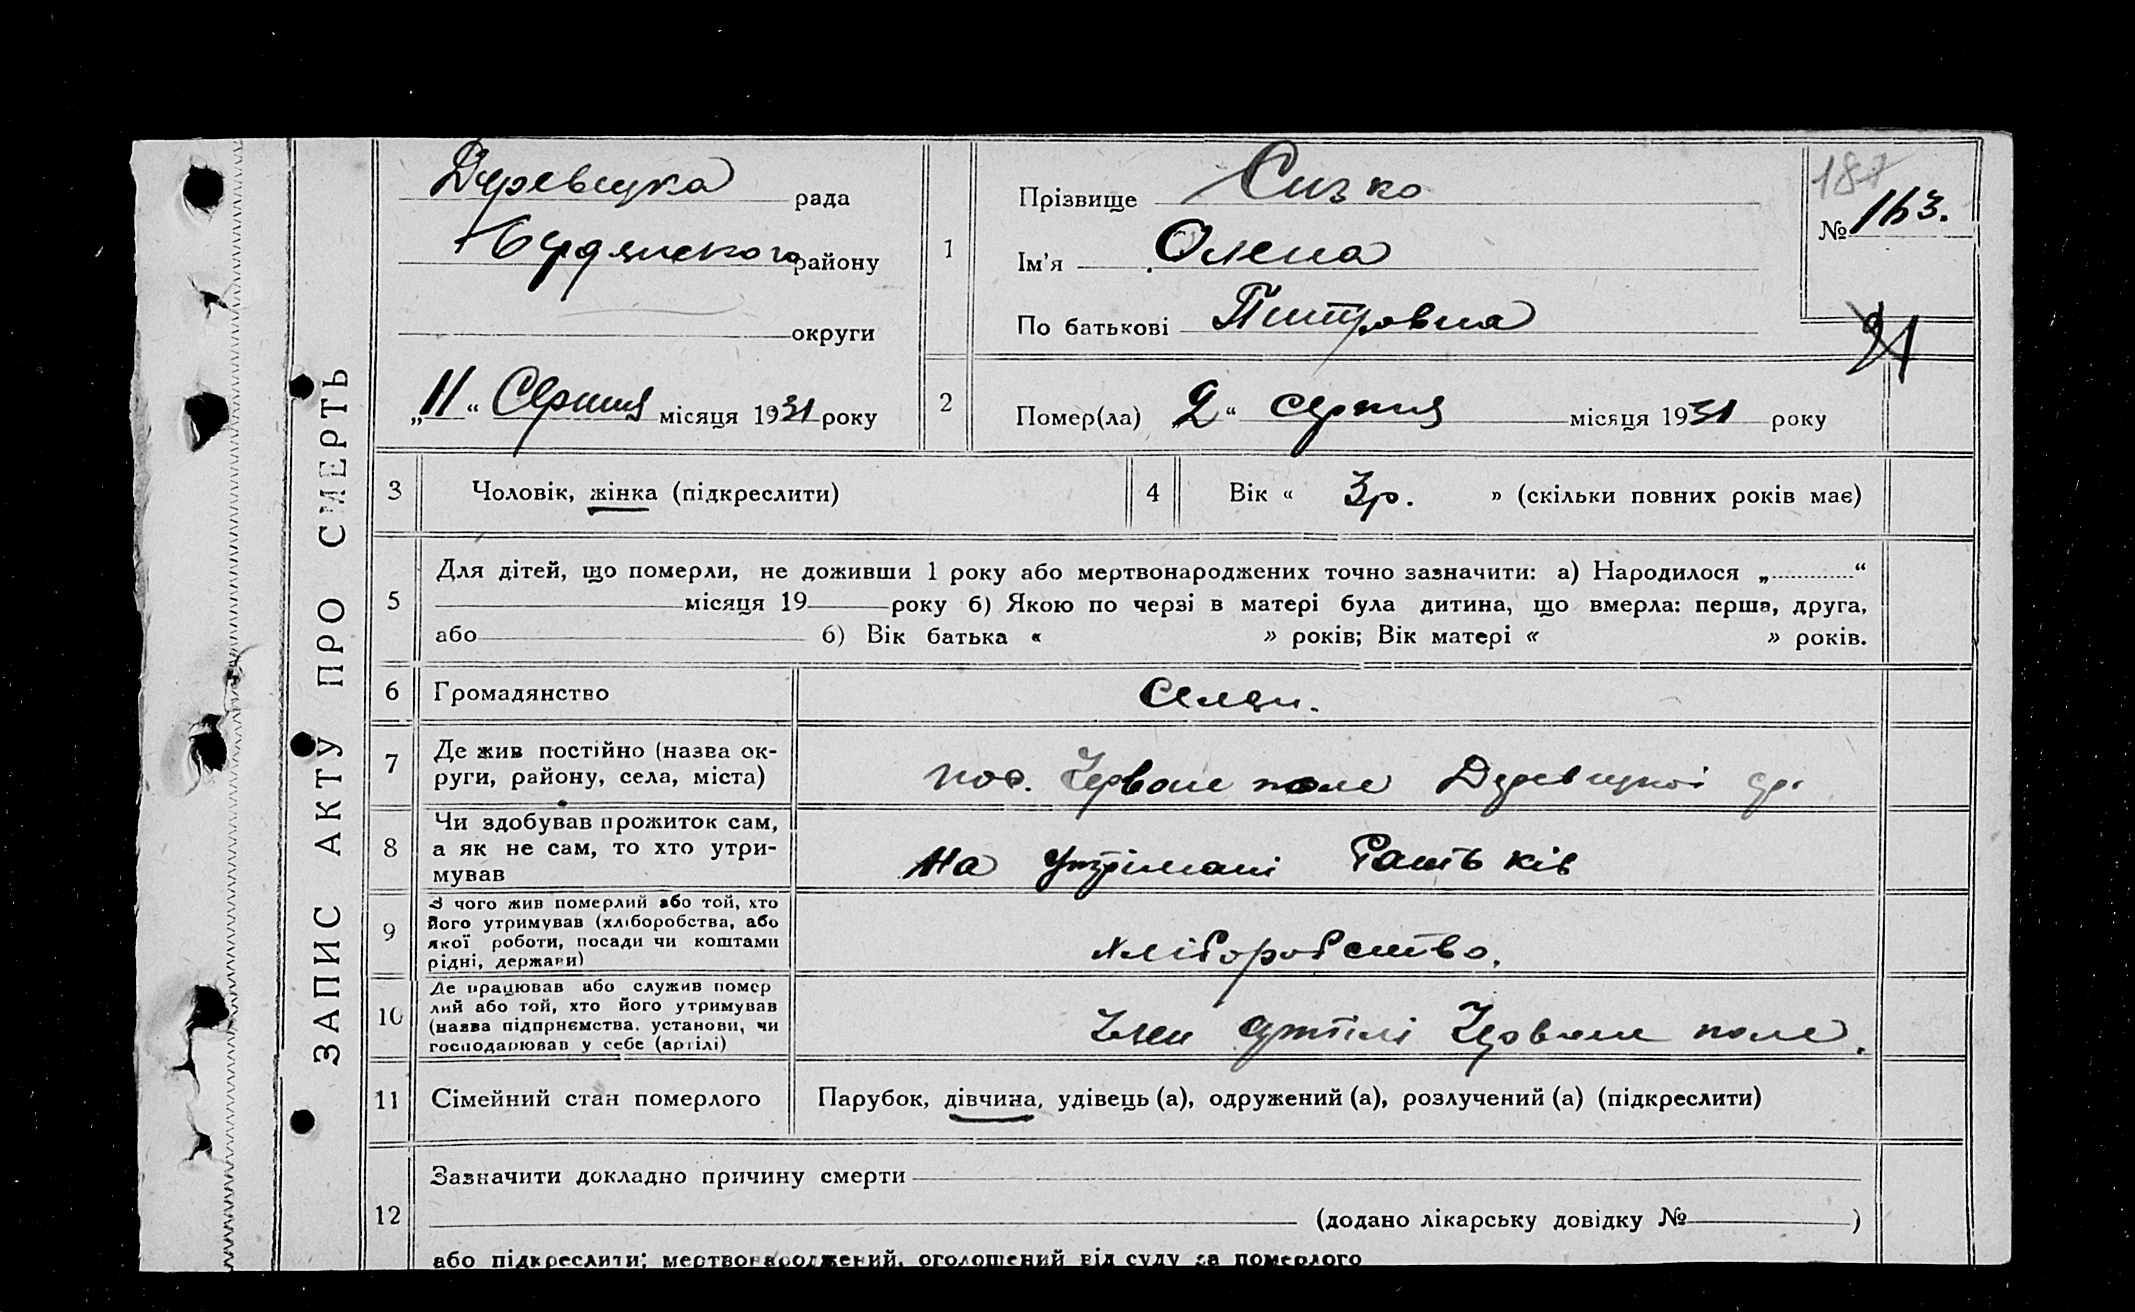 ЗАПИС АКТУ ПРО СМЕРТЬ
рада
району
округи
„11“ Серпня місяця 1931 року
1
Прізвище Сизко
Ім'я Олена
По батькові Питровна
187
№ 163.
2
Помер(ла) „2“ серпня місяця 1931 року
3 Чоловік, жінка (підкреслити)
4 Вік « 3р. » (скільки повних років має)
5
Для дітей, що померли, не доживши 1 року або мертвонароджених точно зазначити: а) Народилося „ “
місяця 19 року б) Якою по черзі в матері була дитина, що вмерла: перша, друга,
або б) Вік батька « » років; Вік матері « » років.
6 Громадянство Селян.
7
Де жив постійно (назва ок-
руги, району, села, міста)
пос. Червоне поле
8
Чи здобував прожиток сам,
а як не сам, то хто утри-
мував
на утрімані батьків
9
З чого жив померлий або той, хто
його утримував (хліборобства, або
якої роботи, посади чи коштами
рідні, держави)
хліборобство.
10
Де працював або служив помер
лий або той, хто його утримував
(назва підпрнємства, установи, чи
господарював у себе (артілі)
Член артілі Червоне поле.
11 Сімейний стан померлого
Парубок, дівчина, удівець (а), одружений (а), розлучений (а) (підкреслити)
12
Зазначити докладно причину смерти
(додано лікарську довідку № )
або підкреслити: мертвонароджений, оголошений від суду за померлого